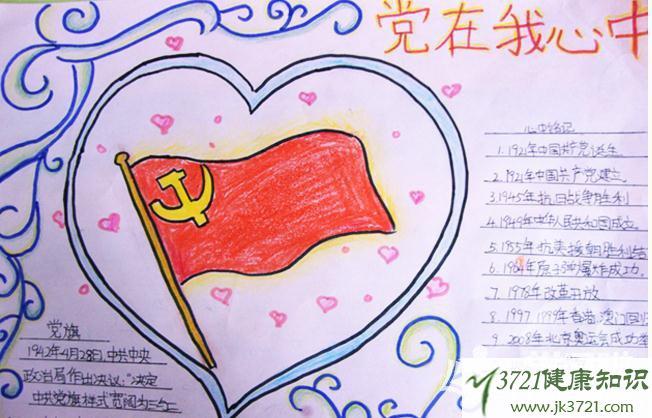 党在我心中
心中铭记
1.1921年中国共产党诞生
2.1921年中国共产党建立
3.1945年抗日战争胜利
4.1949年中华人民共和国成立
5. 抗美援朝胜利结
6.1964年原子弹爆炸成功
7.1978年改革开放
8.1997 1999年香港澳门回归
9.2008年北京奥运会成功举
党旗
1942年4月28日,中共中央
政治局作出决议:"决定
中共党旗样式宽阔为三与二
3721健康知识
www.jk3721.com